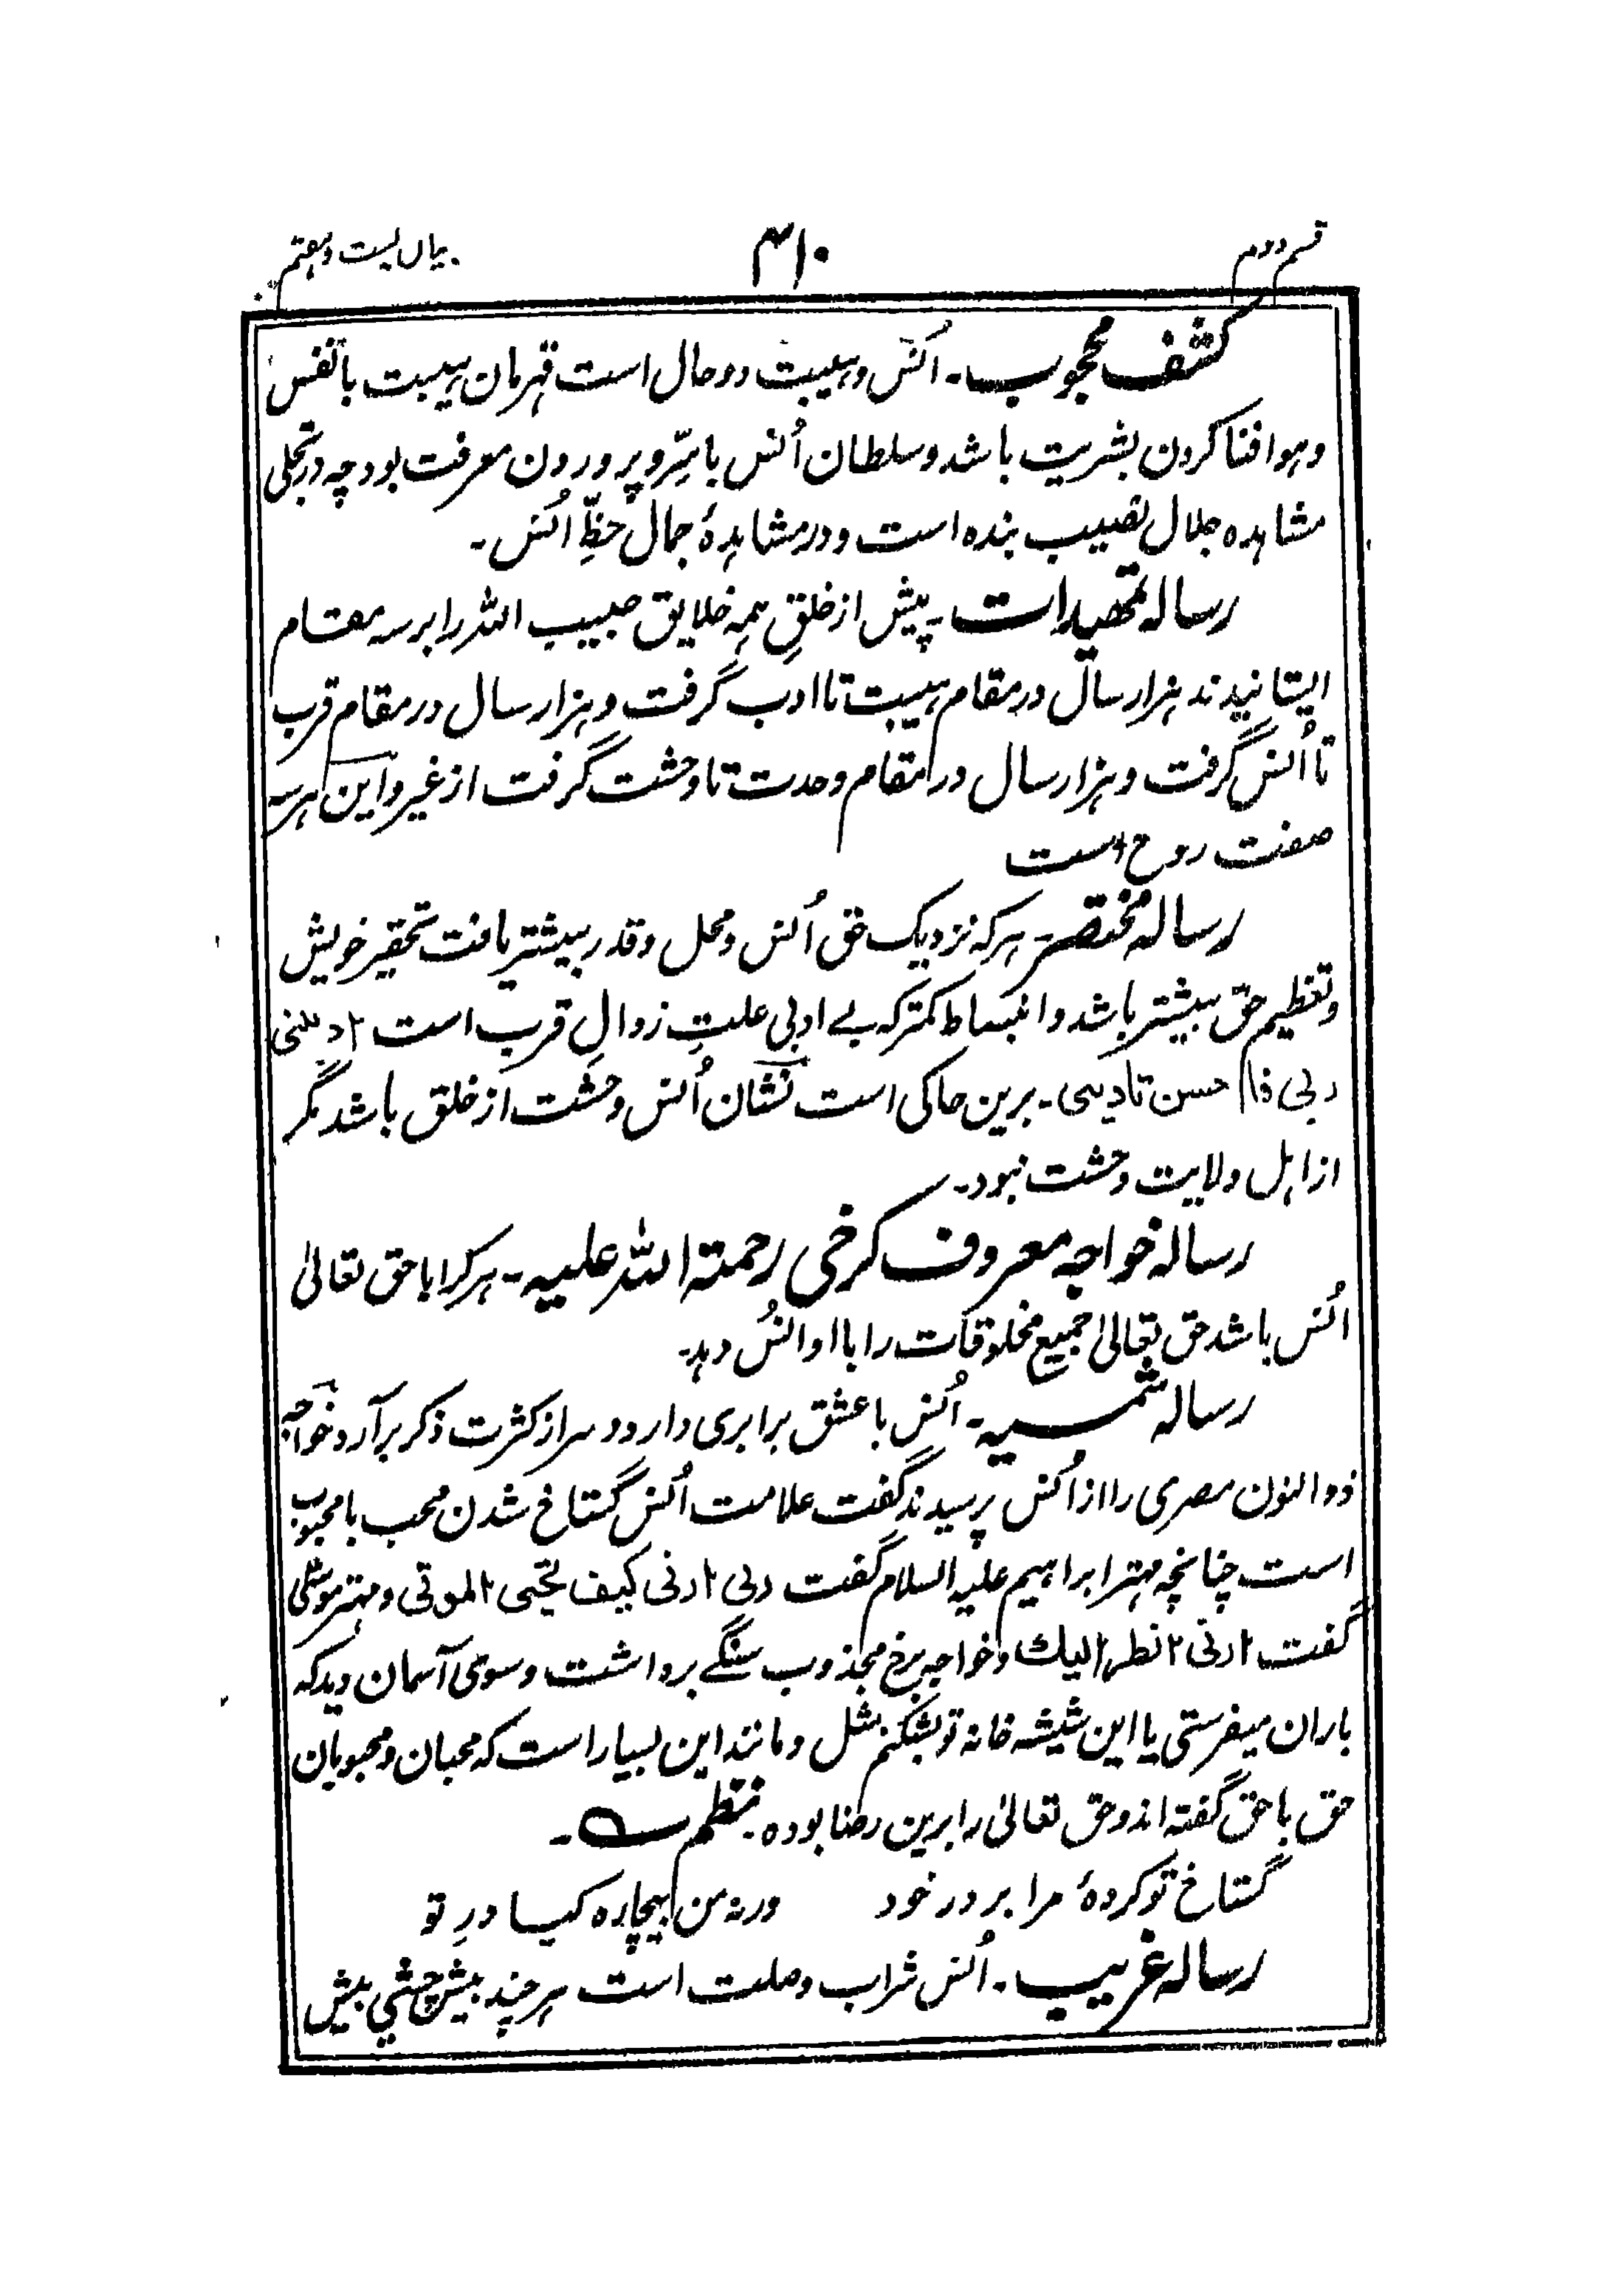 قسم دوم
۴۱۰
بیان بست و هفتم
کشف محجوب۔ اُنس و ہیبت دو حال است قہرمان ہیبت با نفس
و ہوا فنا کردن بشریت باشد و سلطان اُنس با سِرّ و پروردن معرفت بود چہ در تجلی
مشاہدہ جلال نصیب بندہ است و در مشاہدۂ جمال حظِّ اُنس۔
رسالہ تمہیدات۔ پیش از خلقِ ہمہ خلایق حبیب اللہ را بر سہ مقام
ایستانیدند ہزار سال در مقام ہیبت تا ادب گرفت و ہزار سال در مقام قرب
تا اُنس گرفت و ہزار سال در مقام وحدت تا وحشت گرفت از غیر و این ہر سہ
صفت روح است
رسالہ مختصر۔ ہر کہ نزدیک حق اُنس و محل و قدر بیشتر یافت تحقیر خویش
و تعظیم حق بیشتر باشد و انبساط کمتر کہ بے ادبی علتِ زوالِ قرب است ادبنی
ربی فا حسن تادیبی۔ برین حاکی است نشان اُنس وحشت از خلق باشد مگر
از اہل ولایت وحشت نبود۔
رسالہ خواجہ معروف کرخی رحمۃ اللہ علیہ۔ ہر کرا با حق تعالیٰ
اُنس باشد حق تعالیٰ جمیع مخلوقات را با او اُنس دہد۔
رسالہ شمسیہ۔ اُنس با عشق برابری دارد و سر از کثرت ذکر برآرد و خواجہ
ذوالنون مصری را از اُنس پرسیدند گفت علامت اُنس گستاخ شدن محب با محبوب
است چنانچہ مہتر ابراہیم علیہ السلام گفت ربی ارنی کیف تحیی الموتی و مہتر موسیٰ
گفت ارنی انظر الیك و خواجہ برخ مجذوب سنگے برداشت و سوی آسمان دید کہ
باران میفرستی یا این شیشہ خانہ تو بشکنم مثل و مانند این بسیار است کہ محبان و محبوبان
حق با حق گفتہ اند و حق تعالیٰ را برین رضا بودہ۔ نظم۔
گستاخ تو کردۂ مرا بر در خود ورنہ من بیچارہ کیا درِ تو
رسالہ غریب۔ اُنس شراب وصلت است ہر چند بیش چشی بیش